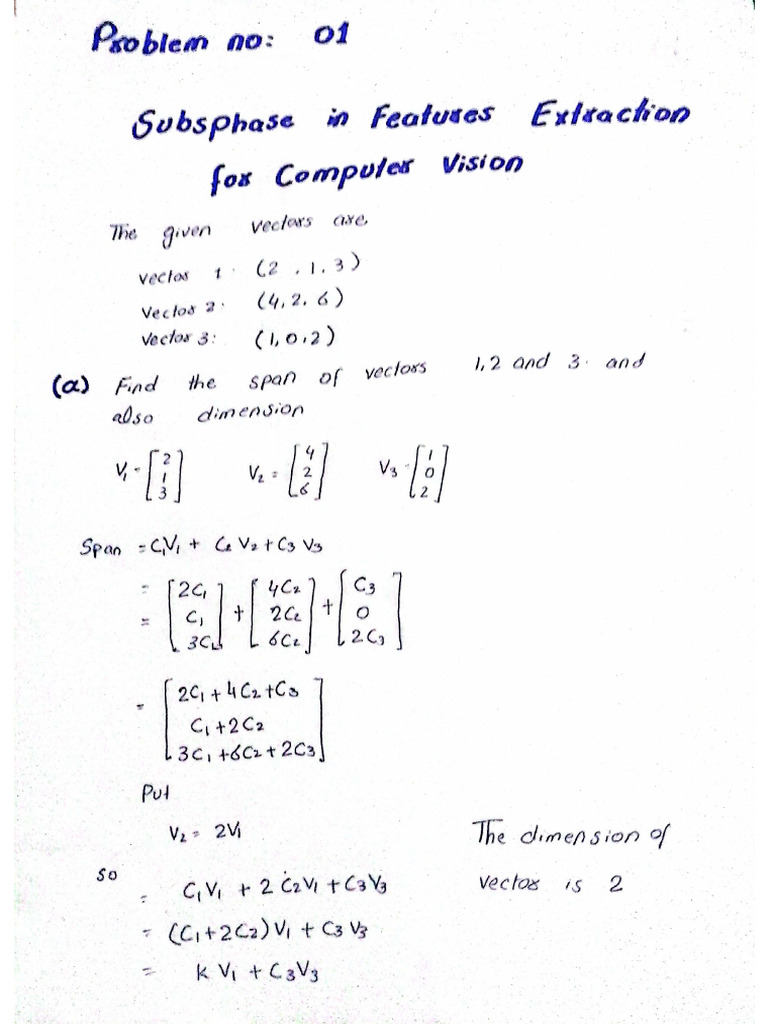 Problem no: 01
Subsphase in Features Extraction
for Computer Vision
The given vectors are,
vector 1: (2, 1, 3)
Vector 2: (4, 2, 6)
Vector 3: (1, 0, 2)
(a) Find the span of vectors 1, 2 and 3. and
also dimension
V₁ = [2 1 3] V₂ = [4 2 6] V₃ = [1 0 2]
Span = C₁V₁ + C₂V₂ + C₃V₃
= = [2C₁ C₁ 3C₁] + [4C₂ 2C₂ 6C₂] + [C₃ 0 2C₃]
= [2C₁ + 4C₂ + C₃
C₁ + 2C₂
3C₁ + 6C₂ + 2C₃]
Put
V₂ = 2V₁
so
= C₁V₁ + 2C₂V₁ + C₃V₃
= (C₁ + 2C₂)V₁ + C₃V₃
= kV₁ + C₃V₃
The dimension of
vector is 2